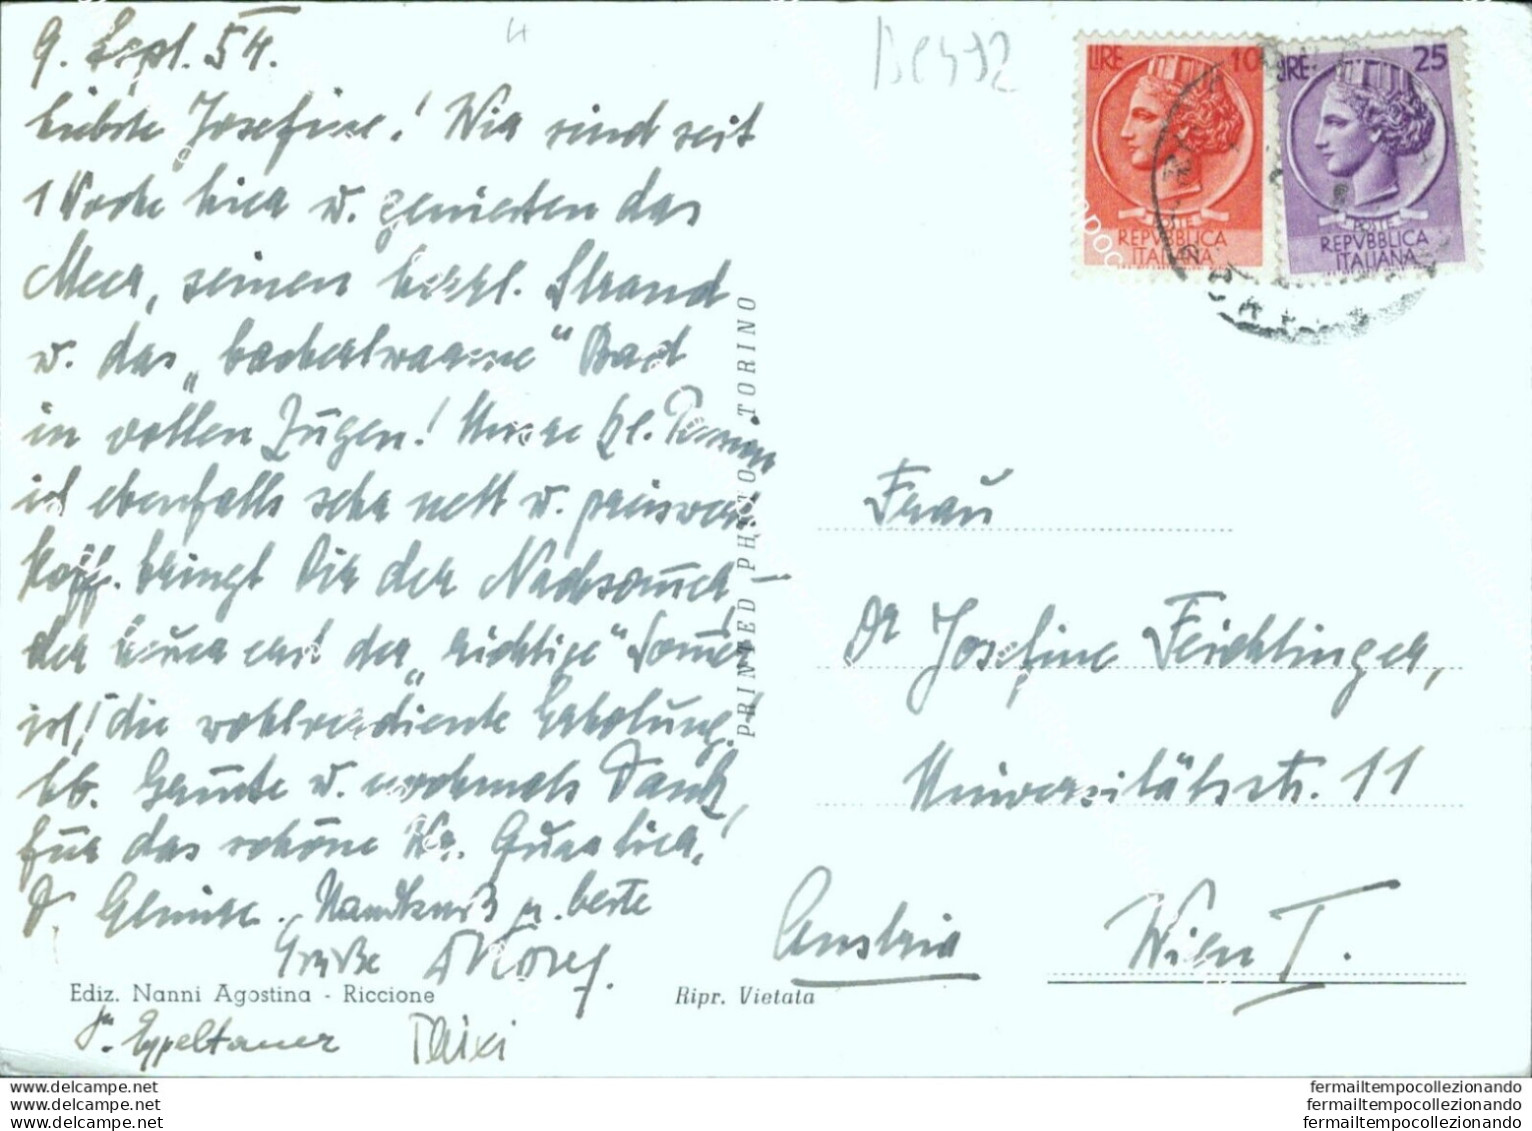 9. Sept. 54.
Liebste Josefine! Wir sind seit
1 Woche hier u. genießen das
Meer, seinen herrl. Strand
u. das „bacherlwarme" Bad
in vollen Zügen! Unsere kl. Pension
ist ebenfalls sehr nett u. preiswert
Hoff. bringt Dir der Nachsom̅er –
der heuer erst der „richtige" Som̅er
ist! die wohlverdiente Erholung.
Bb. Gerüste u. nochmals Dank,
für das schöne Quartier!
D. Handkuß u. beste
Grüße
Ediz. Nanni Agostina - Riccione
Ripr. Vietata
PRINTED PHOTO TORINO
BC492
LIRE 10
POSTE
REPVBBLICA
ITALIANA
LIRE 25
POSTE
REPVBBLICA
ITALIANA
Frau
Dr Josefine Feichtinger,
Universitätsstr. 11
Wien I.
Austria
www.delcampe.net
www.delcampe.net
www.delcampe.net
fermailtempocollezionando
fermailtempocollezionando
fermailtempocollezionando